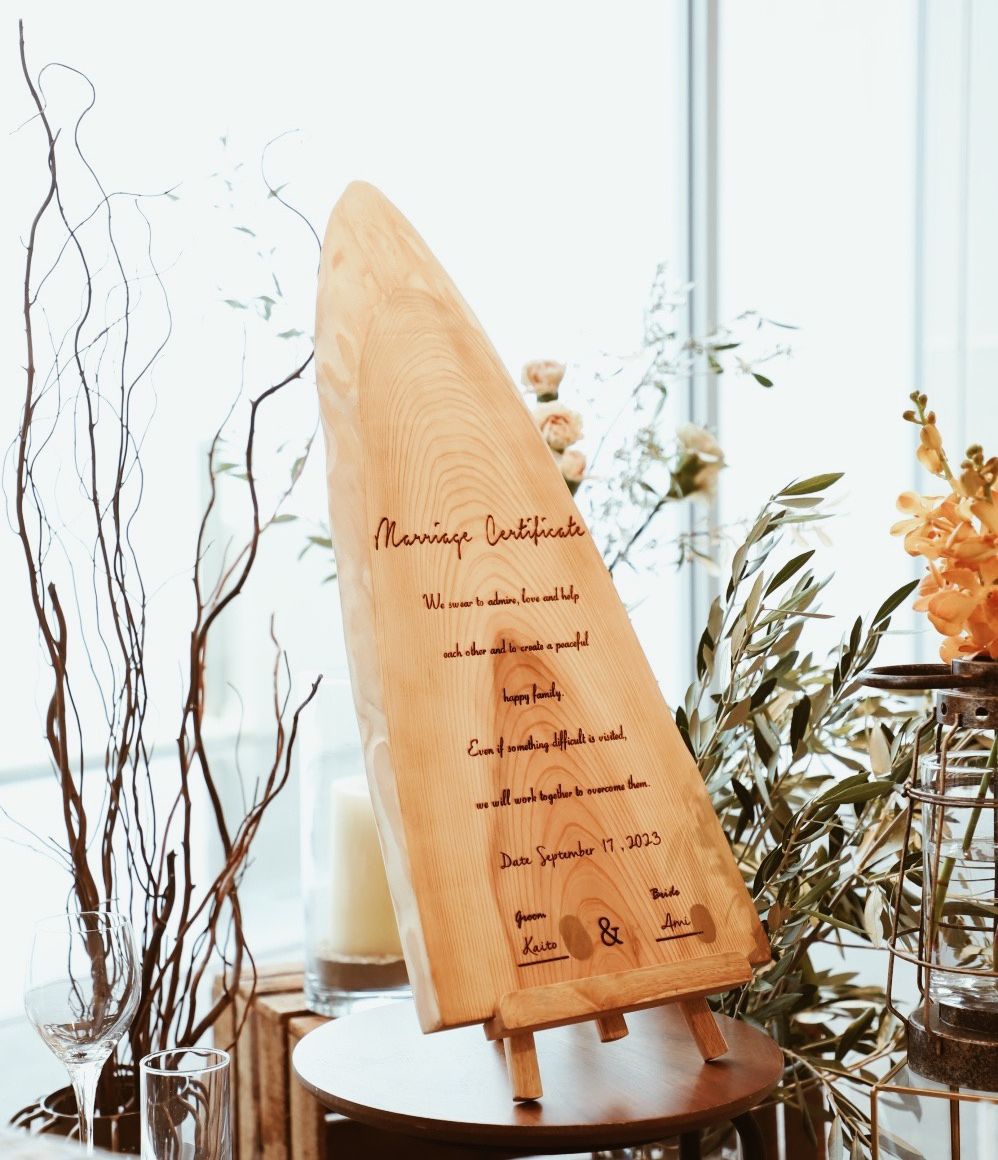 Marriage Certificate
We swear to admire, love and help
each other and to create a peaceful
happy family.
Even if something difficult is visited,
we will work together to overcome them.
Date September 17, 2023
Groom
Bride
Kaito
&
Ami